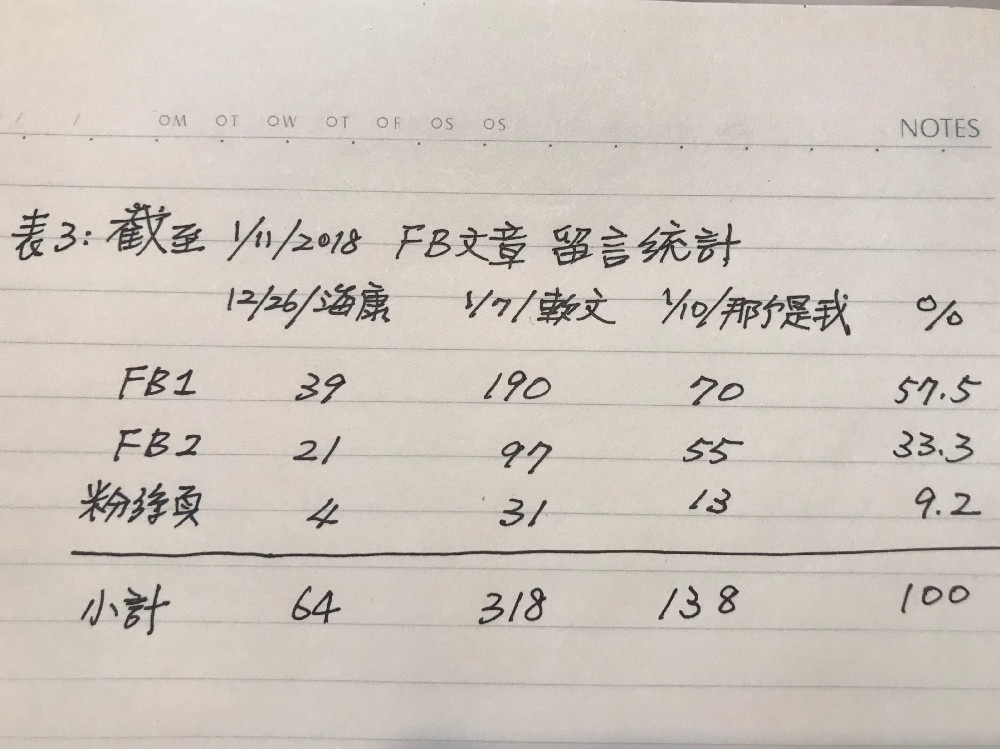 OM OT OW OT OF OS OS
NOTES
表3: 截至 1/11/2018 FB文章 留言統計
12/26/海康 1/7/軟文 1/10/那个是我 %
FB1 39 190 70 57.5
FB2 21 97 55 33.3
粉絲頁 4 31 13 9.2
小計 64 318 138 100